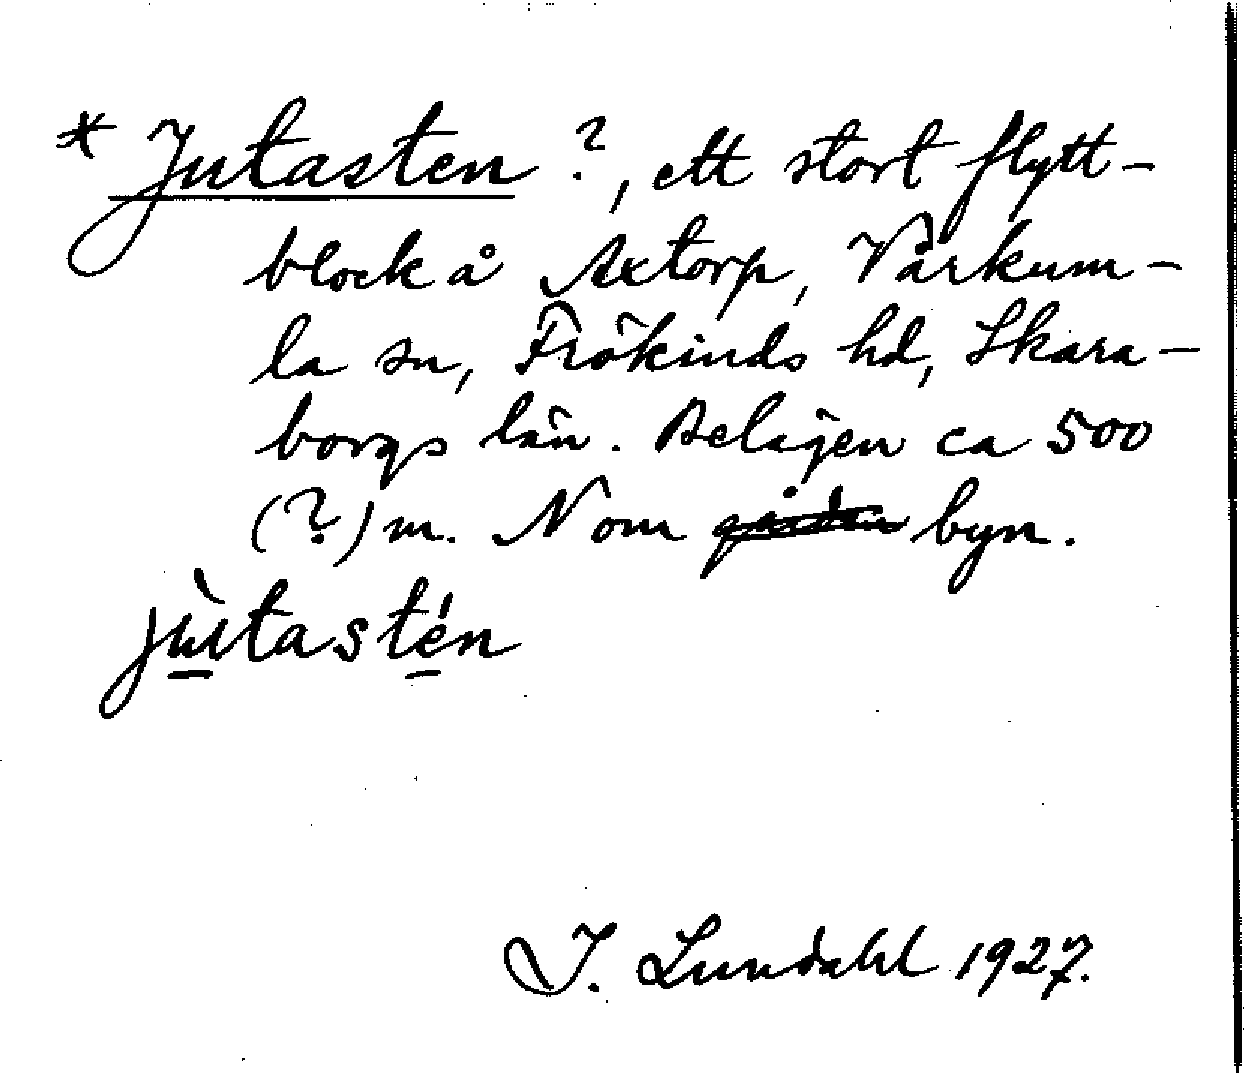 * Jutasten ?, ett stort flytt-
block å Axtorp, Vårkum-
la sn, Frökinds hd, Skara-
borgs län. Belägen ca 500
(?) m. N om gården byn.
jùtastén
I. Lundahl 1927.